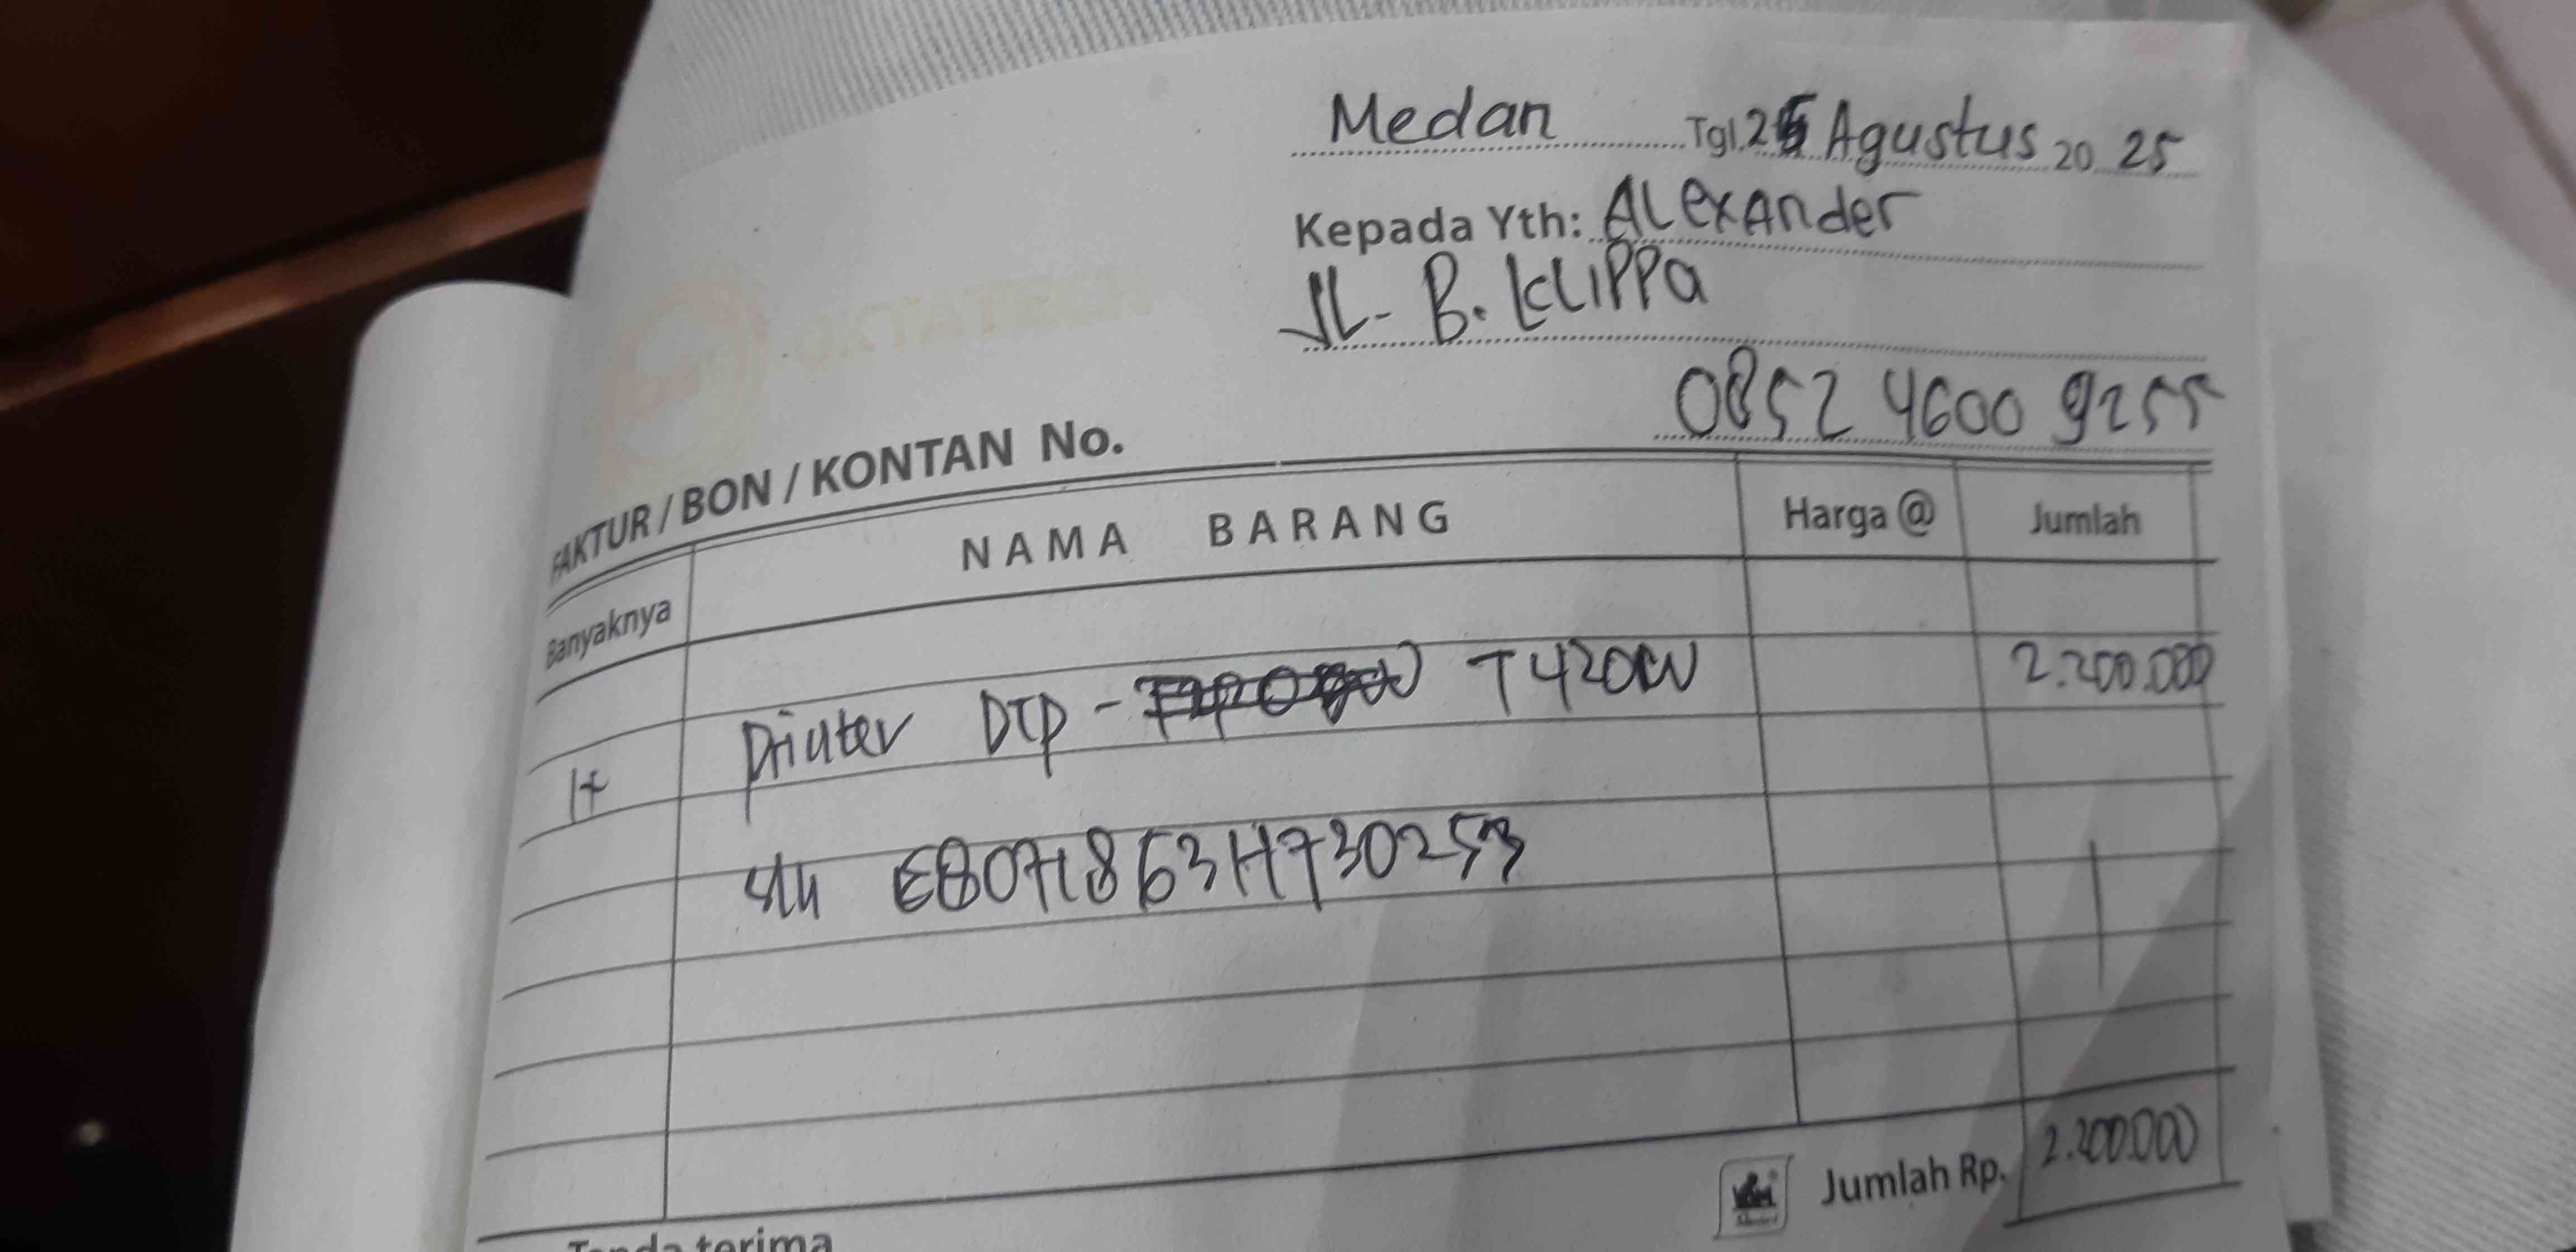 Medan Tgl. 25 Agustus 20 25
Kepada Yth: Alexander
JL. B. Klippa
0852 4600 9255
FAKTUR / BON / KONTAN No.
Banyaknya NAMA BARANG Harga @ Jumlah
1 Printer DCP - T420W 2.200.000
S/N E8071863H730253
Jumlah Rp. 2.200.000
Tanda terima